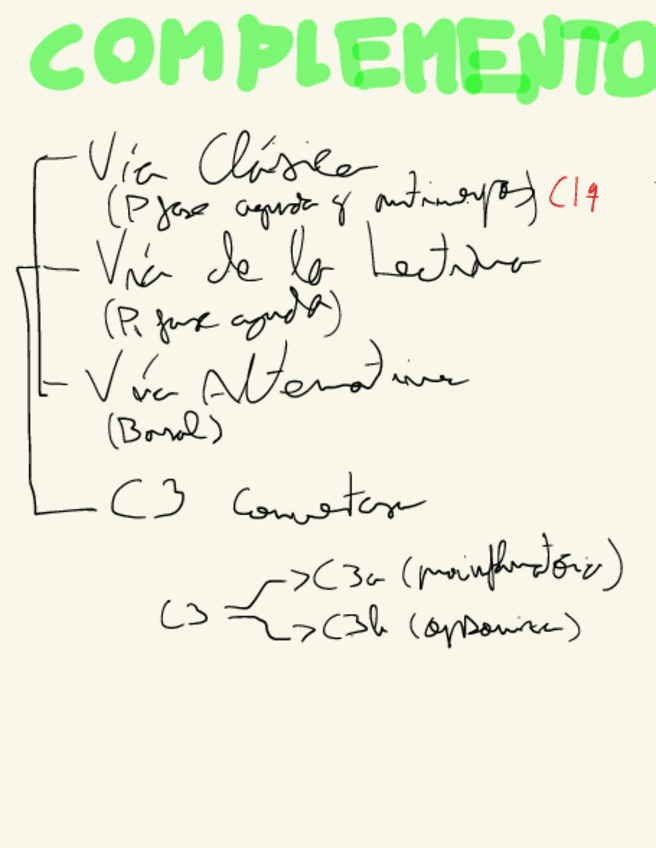 COMPLEMENTO
Vía Clásica
(P fase aguda y anticuerpos) C1q
Vía de la Lectina
(P. fase aguda)
Vía Alternativa
(Basal)
C3 Convertasa
C3 → C3a (proinflamatoria)
→ C3b (opsoniza)